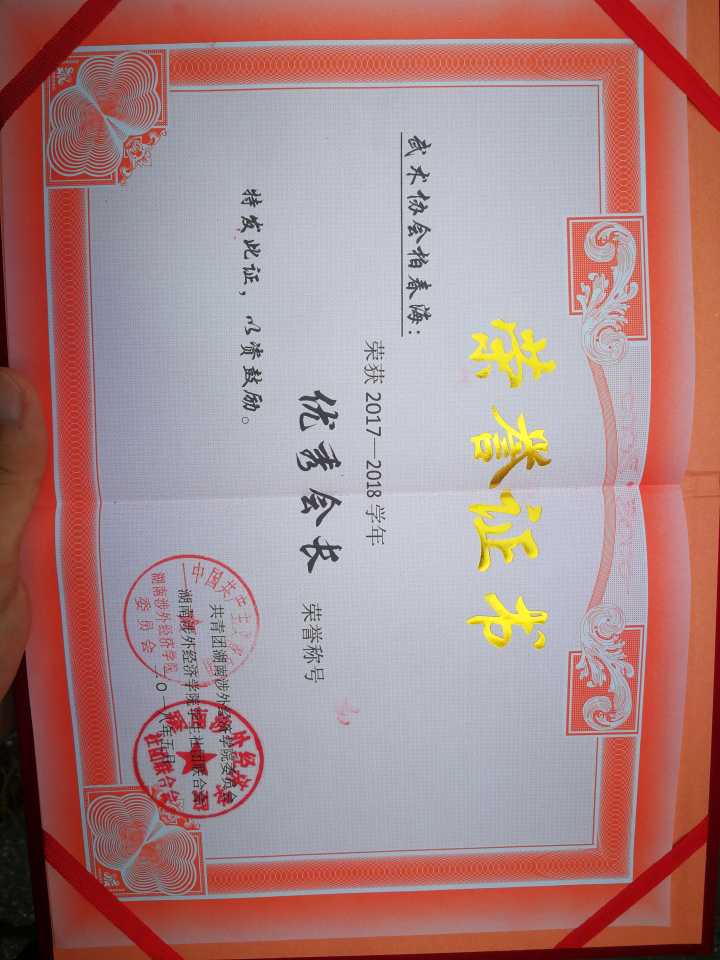 荣誉证书
武术协会柏春海：
荣获 2017—2018 学年
优秀会长 荣誉称号
特发此证，以资鼓励。
共青团湖南涉外经济学院委员会
湖南涉外经济学院学生社团联合会
二〇一八年五月
中国共产主义
湖南涉外经济学院
委员会